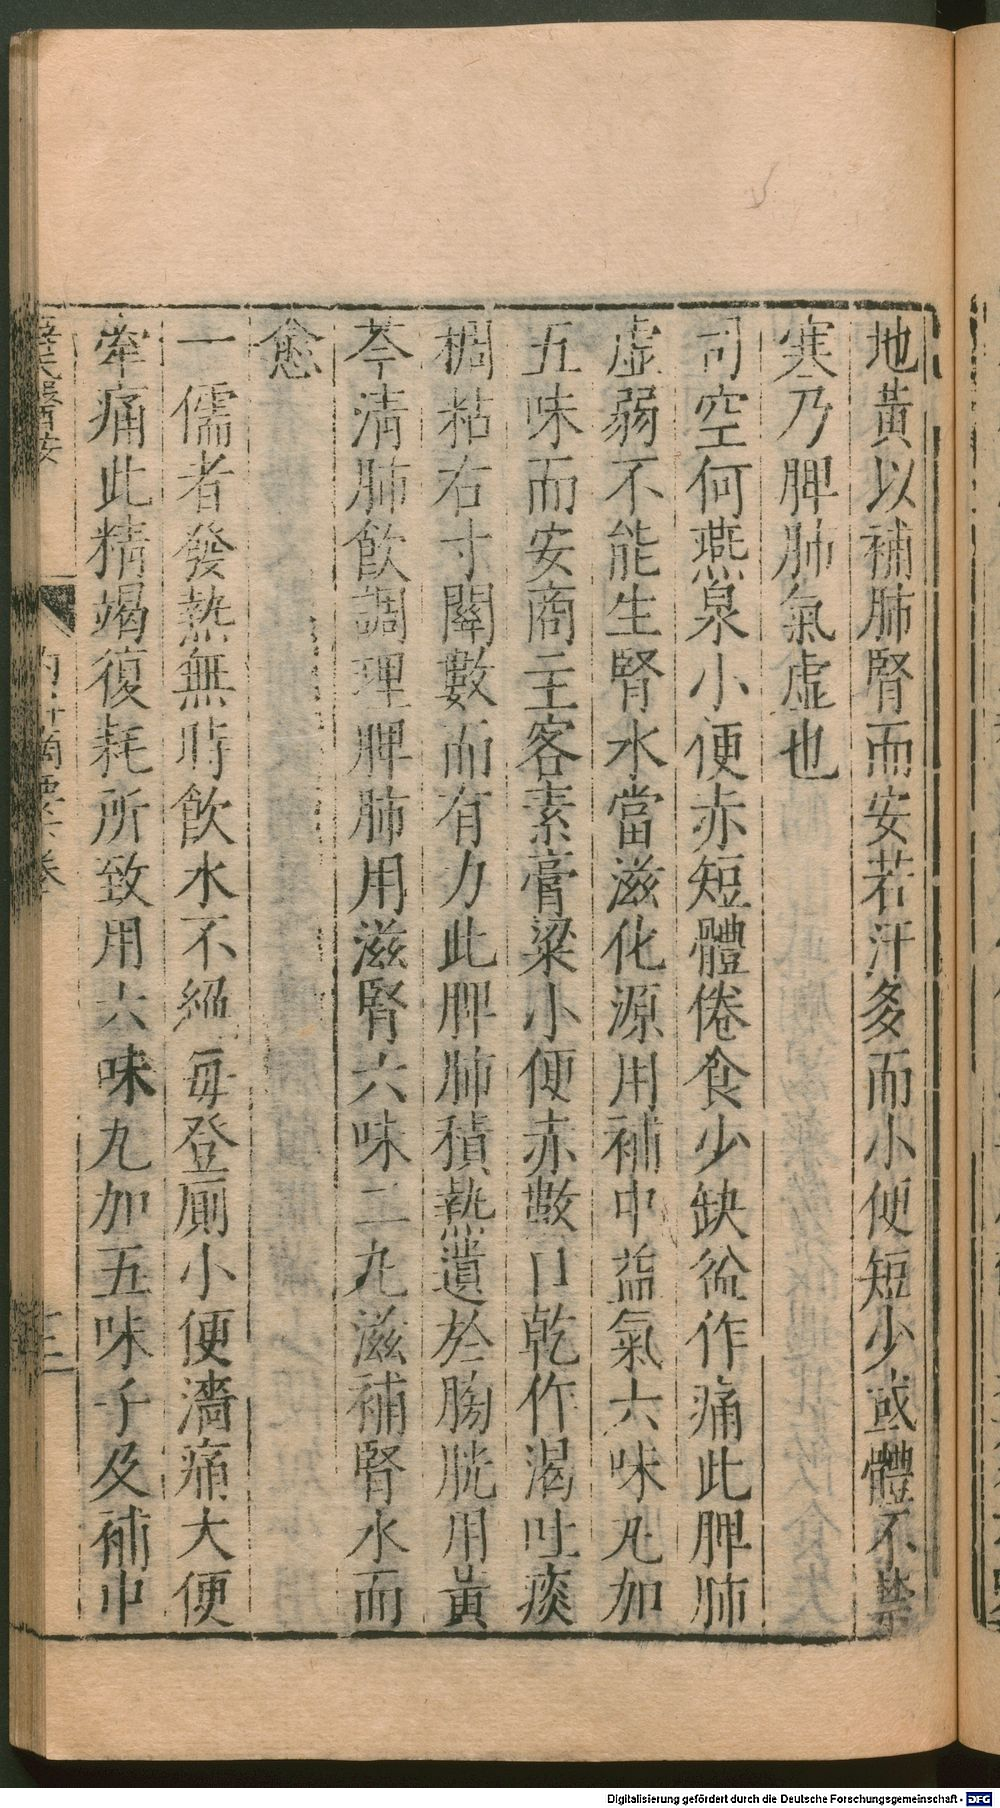 地黃以補肺腎而安若汗多而小便短少或體不禁
寒乃脾肺氣虛也
司空何燕泉小便赤短體倦食少缺盆作痛此脾肺
虛弱不能生腎水當滋化源用補中益氣六味丸加
五味而安商主客素膏粱小便赤數口乾作渴吐痰
稠粘右寸關數而有力此脾肺積熱遺於膀胱用黃
芩清肺飲調理脾肺用滋腎六味二丸滋補腎水而
愈
一儒者發熱無時飲水不絕每登厠小便濇痛大便
牽痛此精竭復耗所致用六味丸加五味子及補中
Digitalisierung gefördert durch die Deutsche Forschungsgemeinschaft - DFG